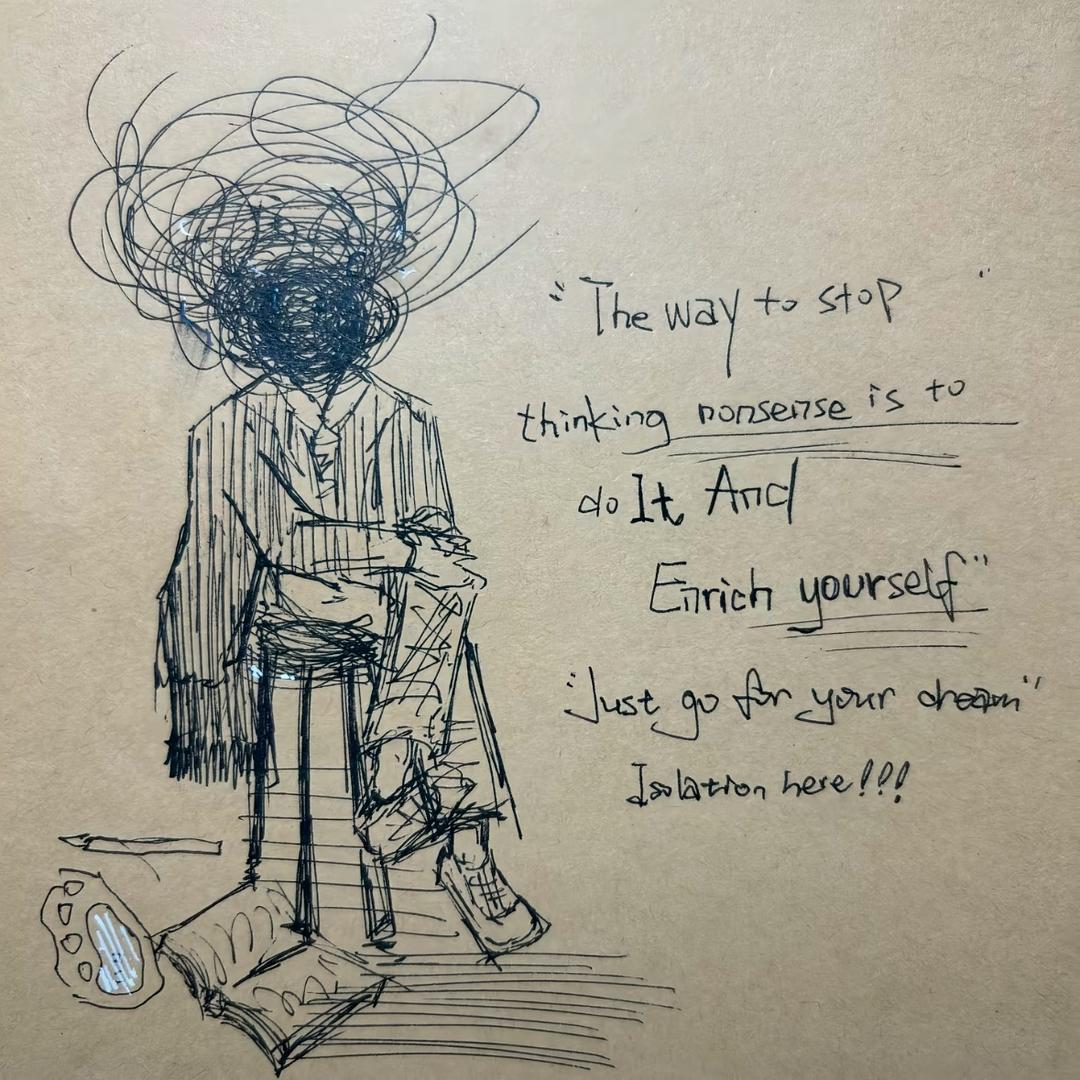 "The way to stop"
thinking nonsense is to
do It And
Enrich yourself"
"Just go for your dream"
Isolation here!!!